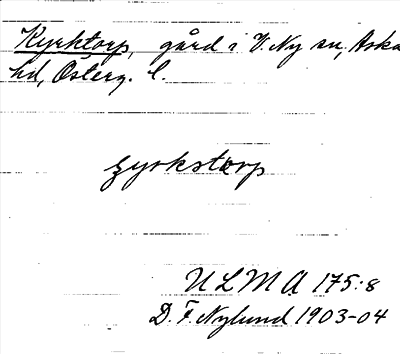 Kyrktorp, gård i V. Ny sn, Aska
hd, Österg. l.
ȥyrkstɷrp
ULMA 175:8
D. F. Nylund 1903-04